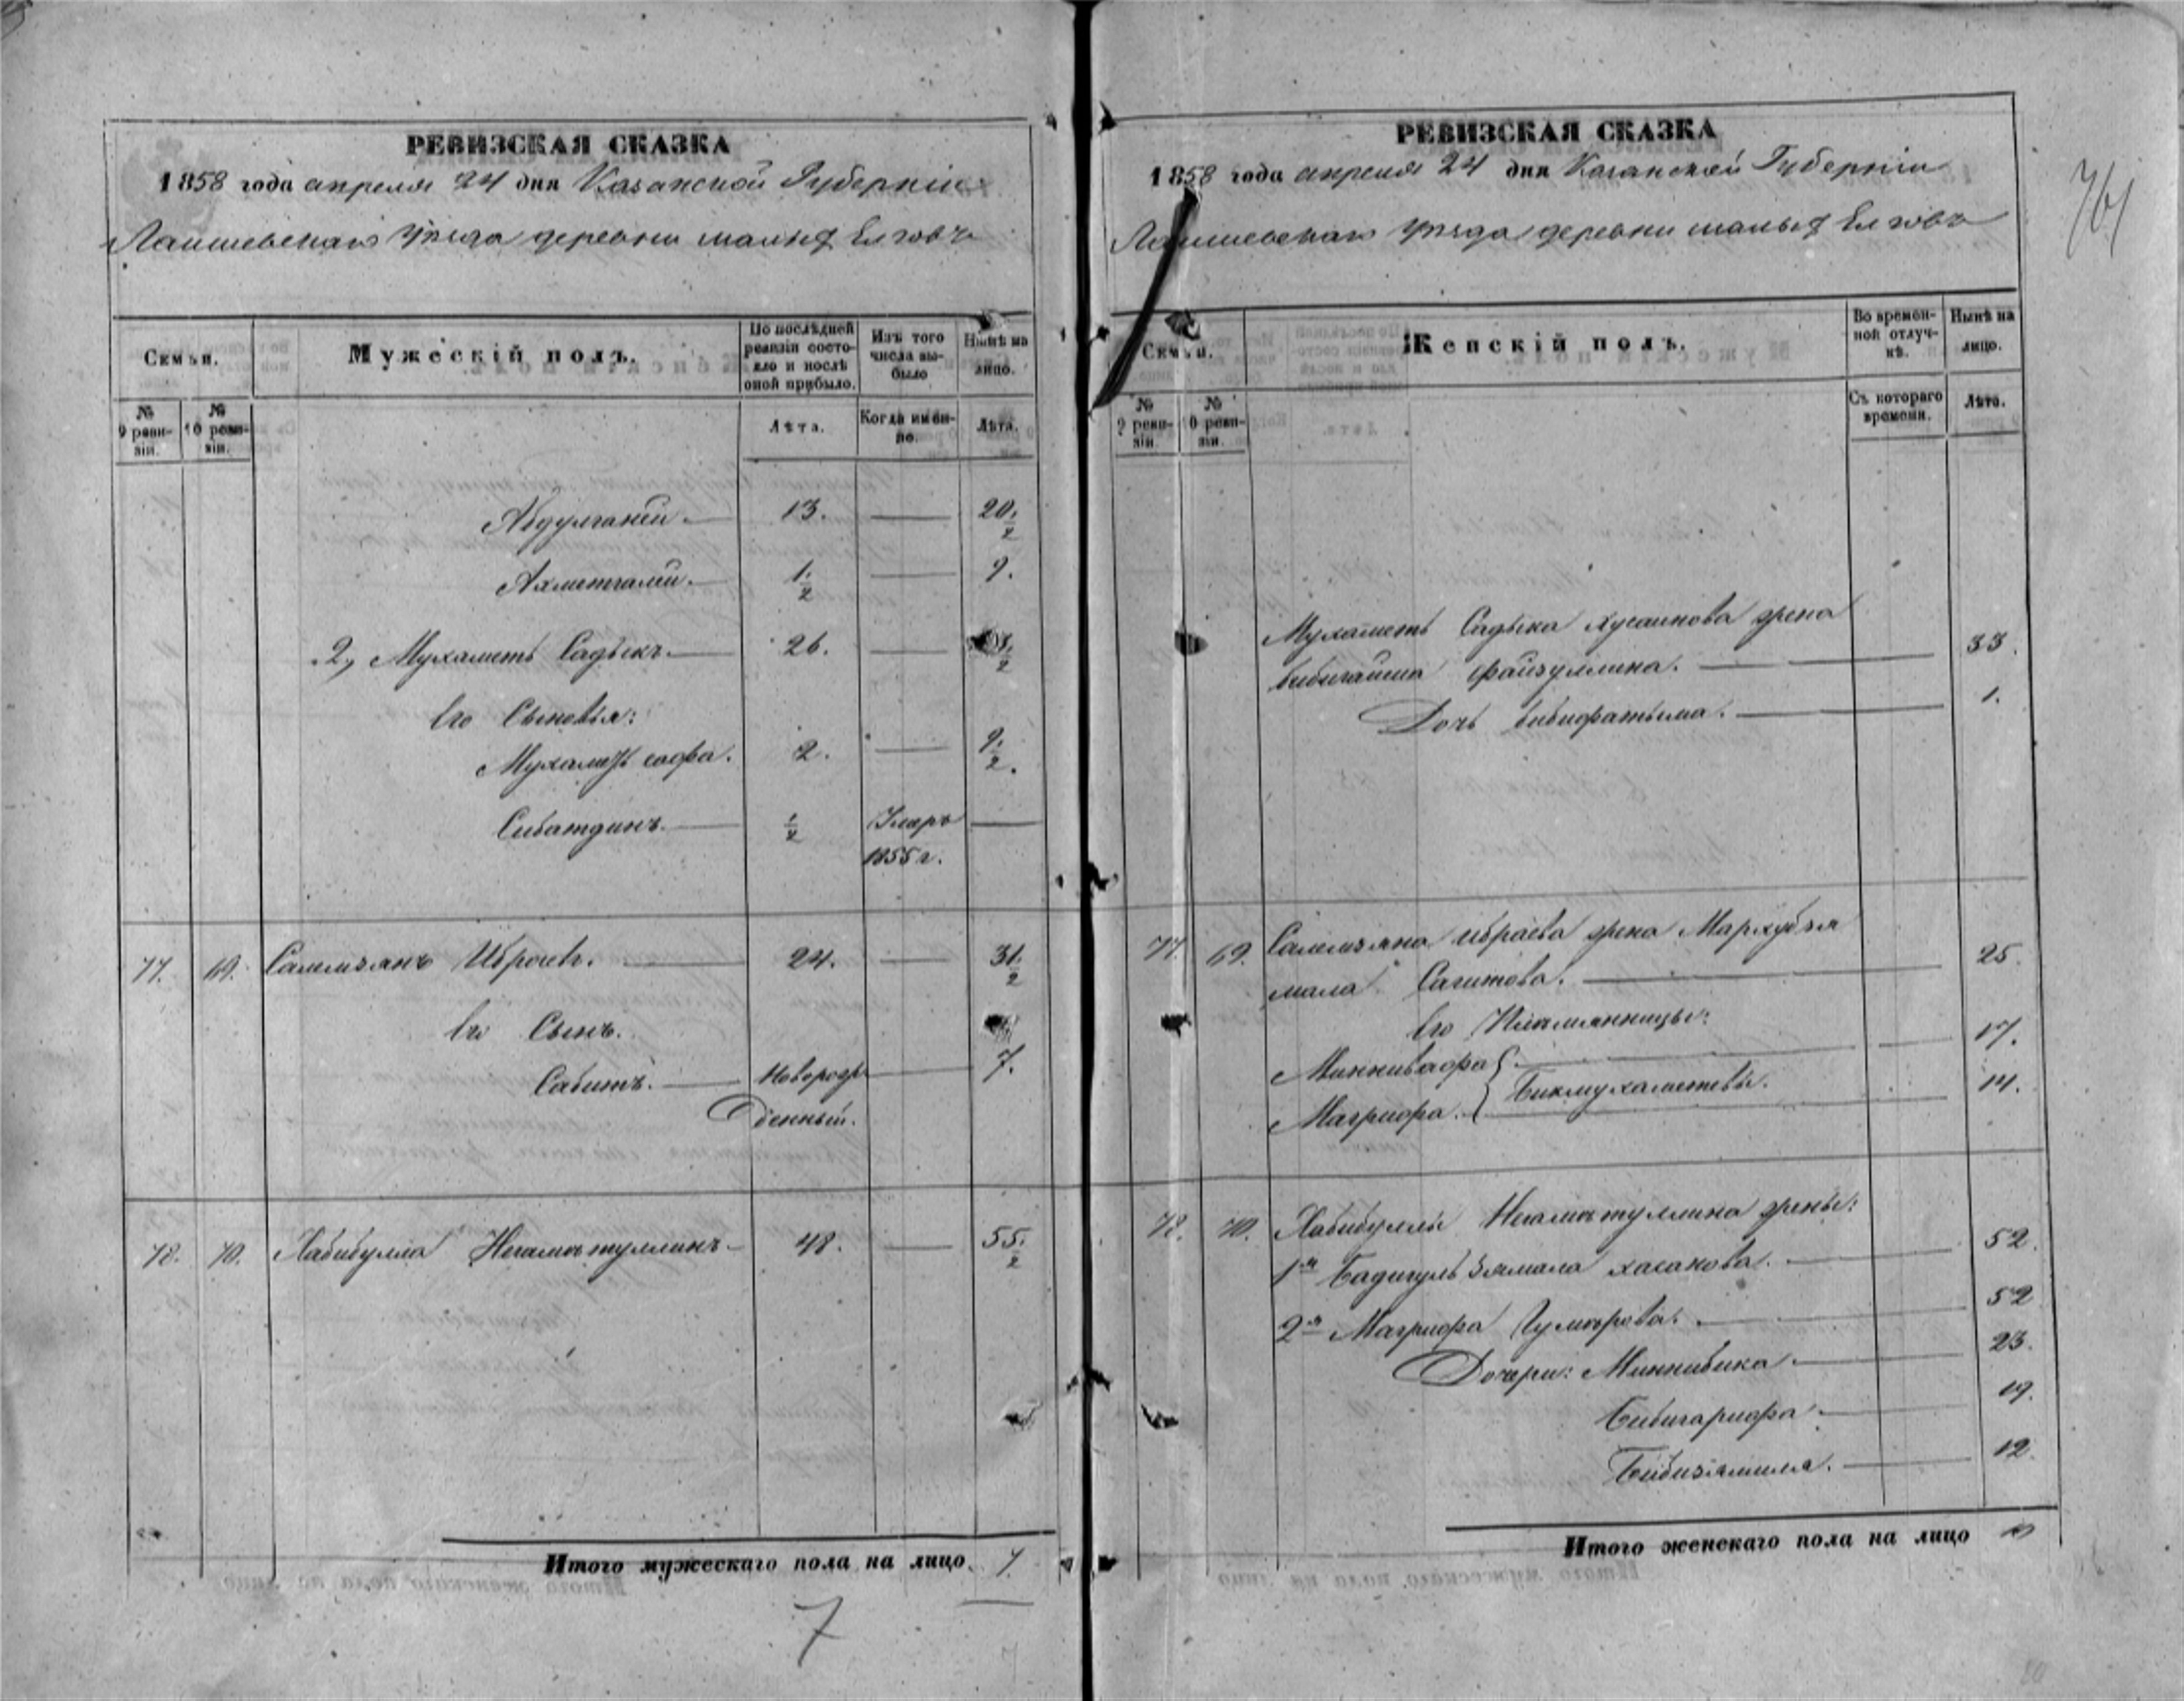 РЕВИЗСКАЯ СКАЗКА
1858 года апреля 24 дня Казанской Губерніи
Лаишевскаго Уѣзда деревни малыхъ Елговъ
Семьи.
Мужескій полъ.
По послѣдней ревизіи состояло и послѣ оной прибыло.
Изъ того числа выбыло
Нынѣ на лицо.
№ 9 ревизіи.
№ 10 ревизіи.
Лѣта.
Когда именно.
Лѣта.
Абдулганей. 13. 20 1/2
Ахметгалей. 1 1/2 9.
2, Мухаметь Садыкъ. 26.
Его Сыновья:
Мухаметь сафа. 2. 9 1/2.
Сибатдинъ. 1/2 Умеръ
1855 г.
77. 69. Салемзянъ Ибраевъ. 24. 31 1/2
Его Сынъ.
Сабитъ. Новорож 7.
денный.
78. 70. Хабибулла Негаматуллинъ 48. 55 1/2
Итого мужескаго пола на лицо. 7.
7
РЕВИЗСКАЯ СКАЗКА
1858 года апреля 24 дня Казанской Губерніи
Лаишевскаго Уѣзда деревни малыхъ Елговъ
761
Семьи.
Женскій полъ.
Во временной отлучкѣ.
Нынѣ на лицо.
№ 9 ревизіи.
№ 10 ревизіи.
Съ котораго времени.
Лѣта.
Мухаметь Садыка Хусаинова жена
Бибигайша Файзуллина. 33.
Дочь Бибифатыма. 1.
77. 69. Салемзяна Ибраева жена Мархубзя
мала Сагитова. 25.
Его Племянницы:
Миннивафа 17.
Бикмухаметевы.
Магрифа. 14.
78. 70. Хабибуллы Негаматуллина жены:
1я Бадигулъ Зямала Хасанова. 52.
2я Магрифа Гумярова. 52
Дочери: Миннибика. 23.
Бибигарифа. 19.
Бибизямиля. 12.
Итого женскаго пола на лицо 10